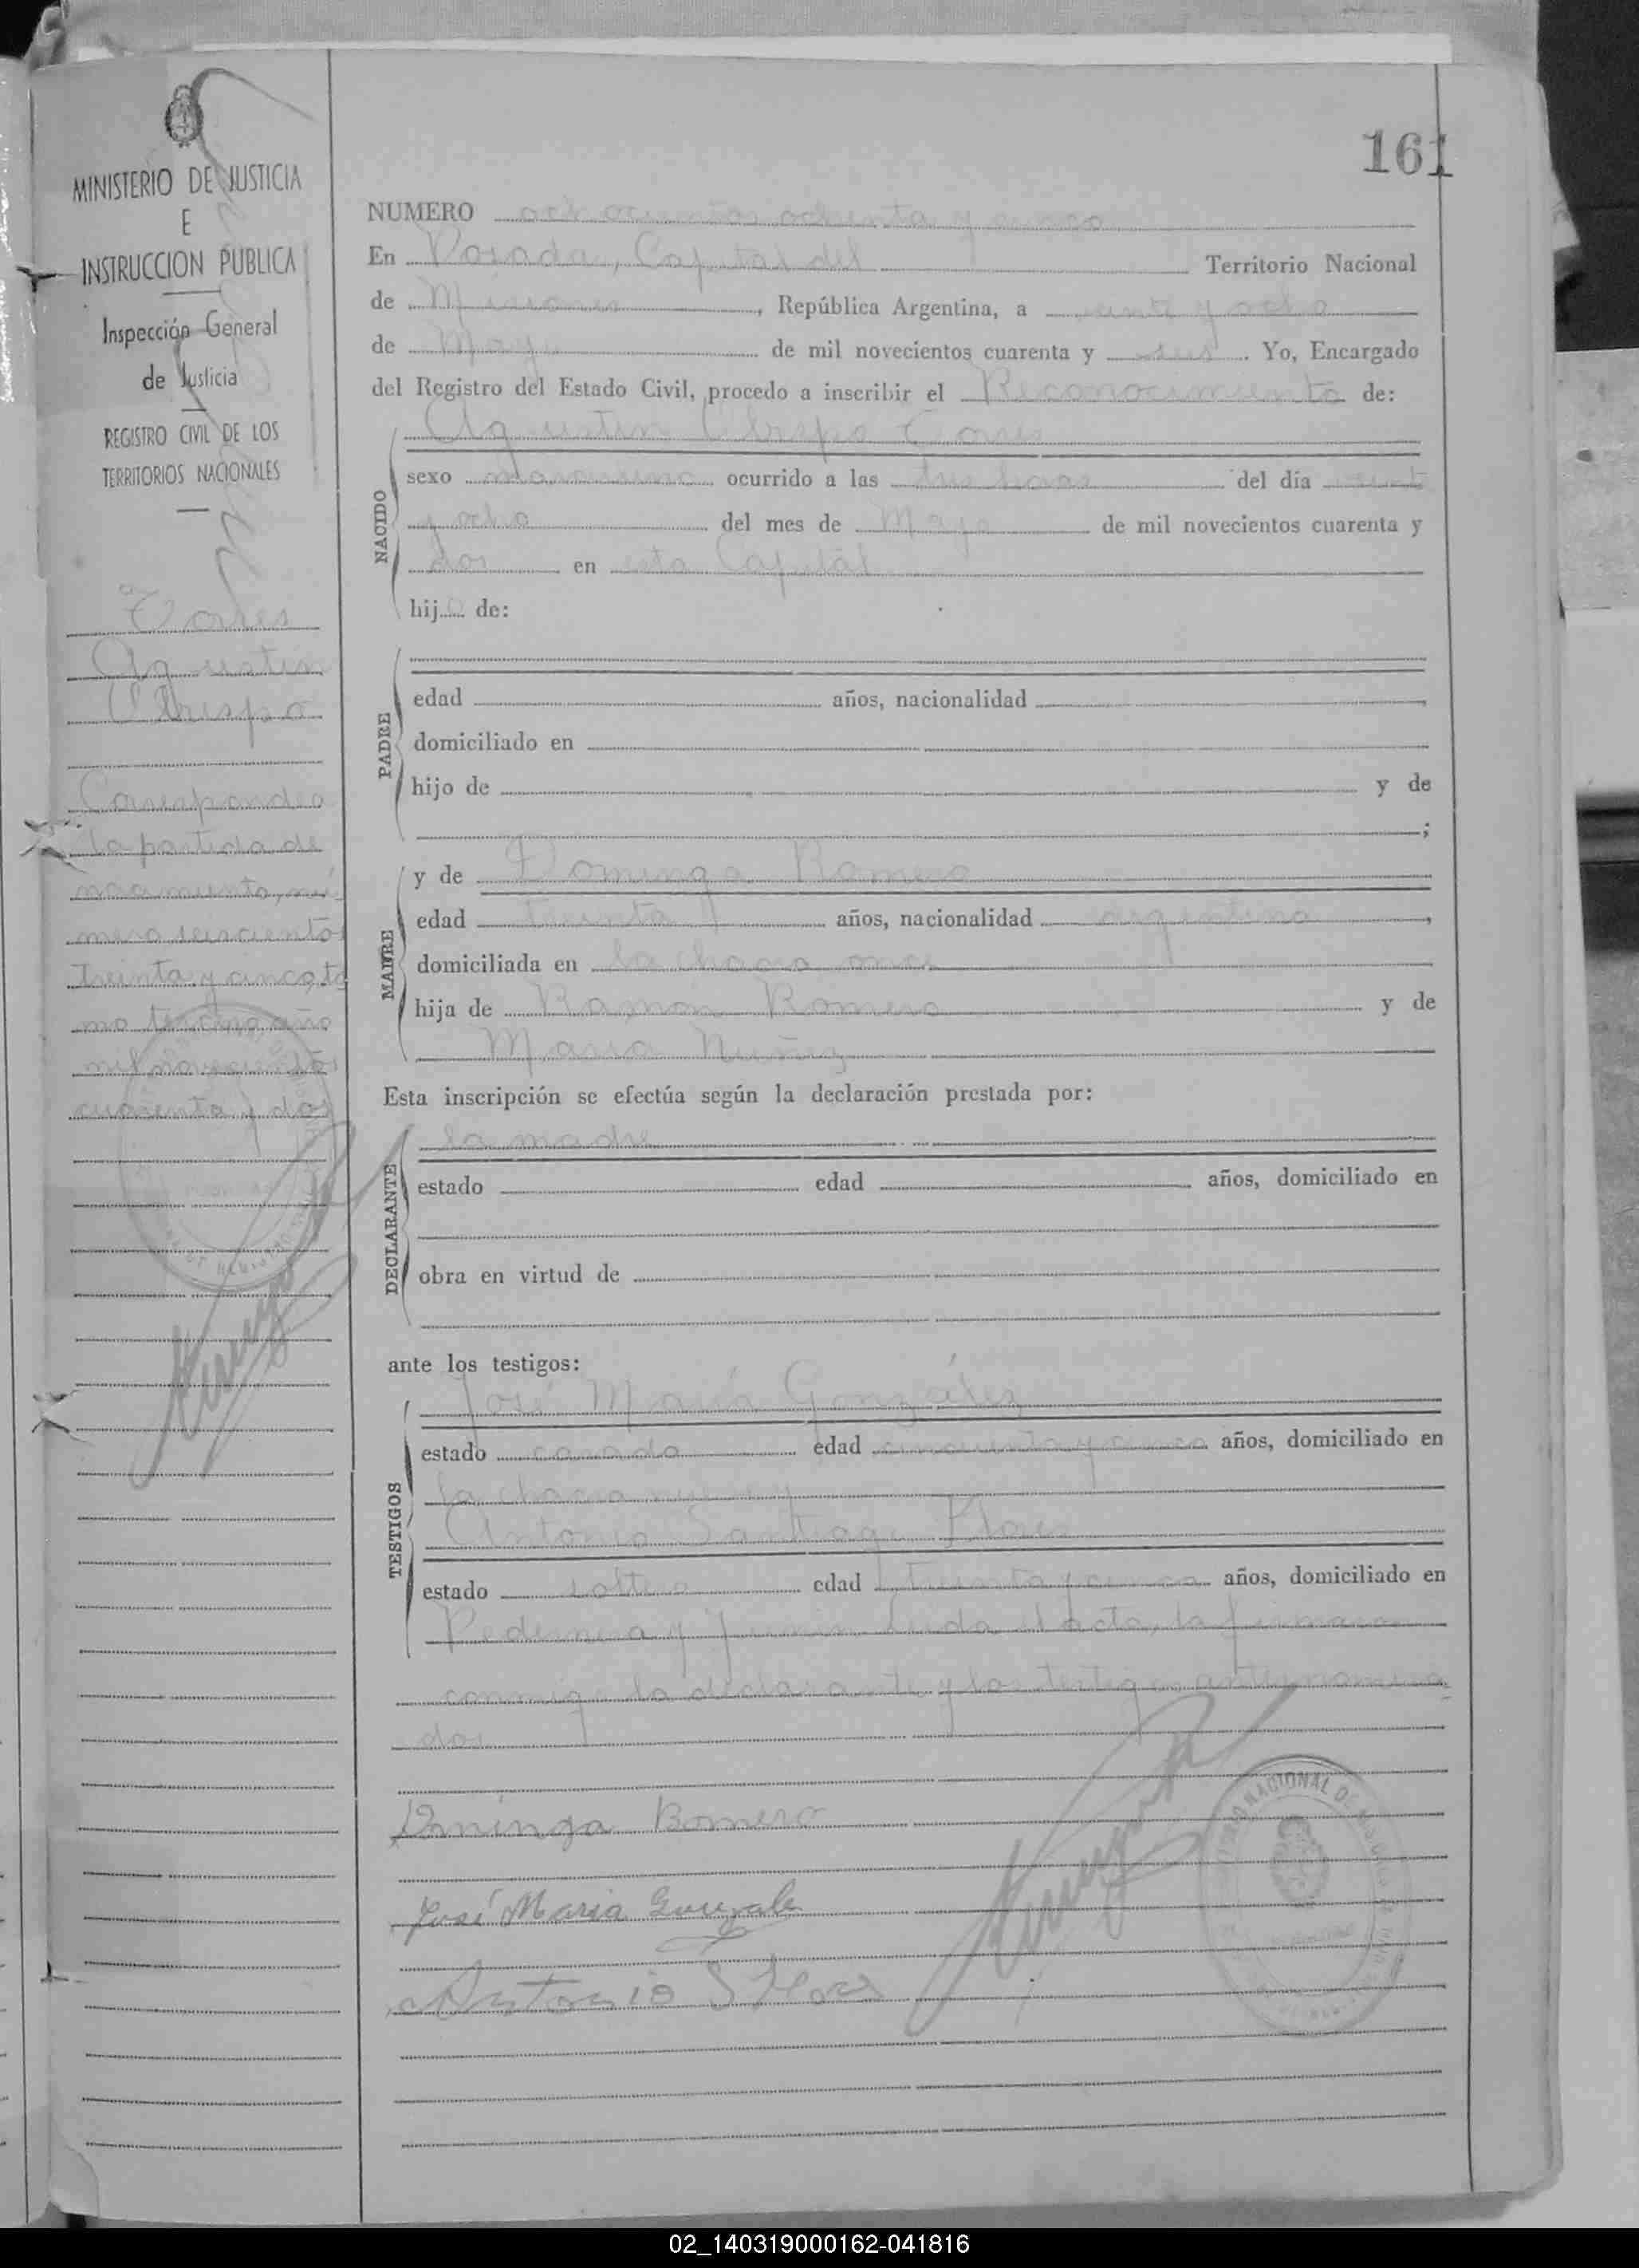 161
MINISTERIO DE JUSTICIA
E
INSTRUCCION PUBLICA
Inspección General
de Justicia
REGISTRO CIVIL DE LOS
TERRITORIOS NACIONALES
Torres
Agustin
Crispo
Corresponde a
la partida de
nacimiento, nú-
mero seiscientos
treinta y cinco, to
mo tercero año
mil novecientos
cuarenta y dos
NUMERO ochocientos ochenta y cinco
En Posadas, Capital del Territorio Nacional
de Misiones, República Argentina, a veinte y ocho
de Mayo de mil novecientos cuarenta y seis. Yo, Encargado
del Registro del Estado Civil, procedo a inscribir el Reconocimiento de:
Agustin Crispo Torres
NACIDO
sexo masculino ocurrido a las tres horas del día veinte
y ocho del mes de Mayo de mil novecientos cuarenta y
dos en esta Capital
hijo de:
PADRE
edad años, nacionalidad
domiciliado en
hijo de y de
;
MADRE
y de Dominga Romero
edad treinta años, nacionalidad argentina,
domiciliada en la chacra once
hija de Ramón Romero y de
Maria Nuñez
Esta inscripción se efectúa según la declaración prestada por:
DECLARANTE
la madre
estado edad años, domiciliado en
obra en virtud de
ante los testigos:
TESTIGOS
José María González
estado casado edad cincuenta y cinco años, domiciliado en
la chacra nueve y
Antonio Santiago Flores
estado soltero edad treinta y cinco años, domiciliado en
Pedernera y Junin Leida el acta, la firmaron
conmigo la declarante y los testigos antes nomina
dos
Dominga Romero
José Maria Gonzale
Antonio S Flores
02_140319000162-041816